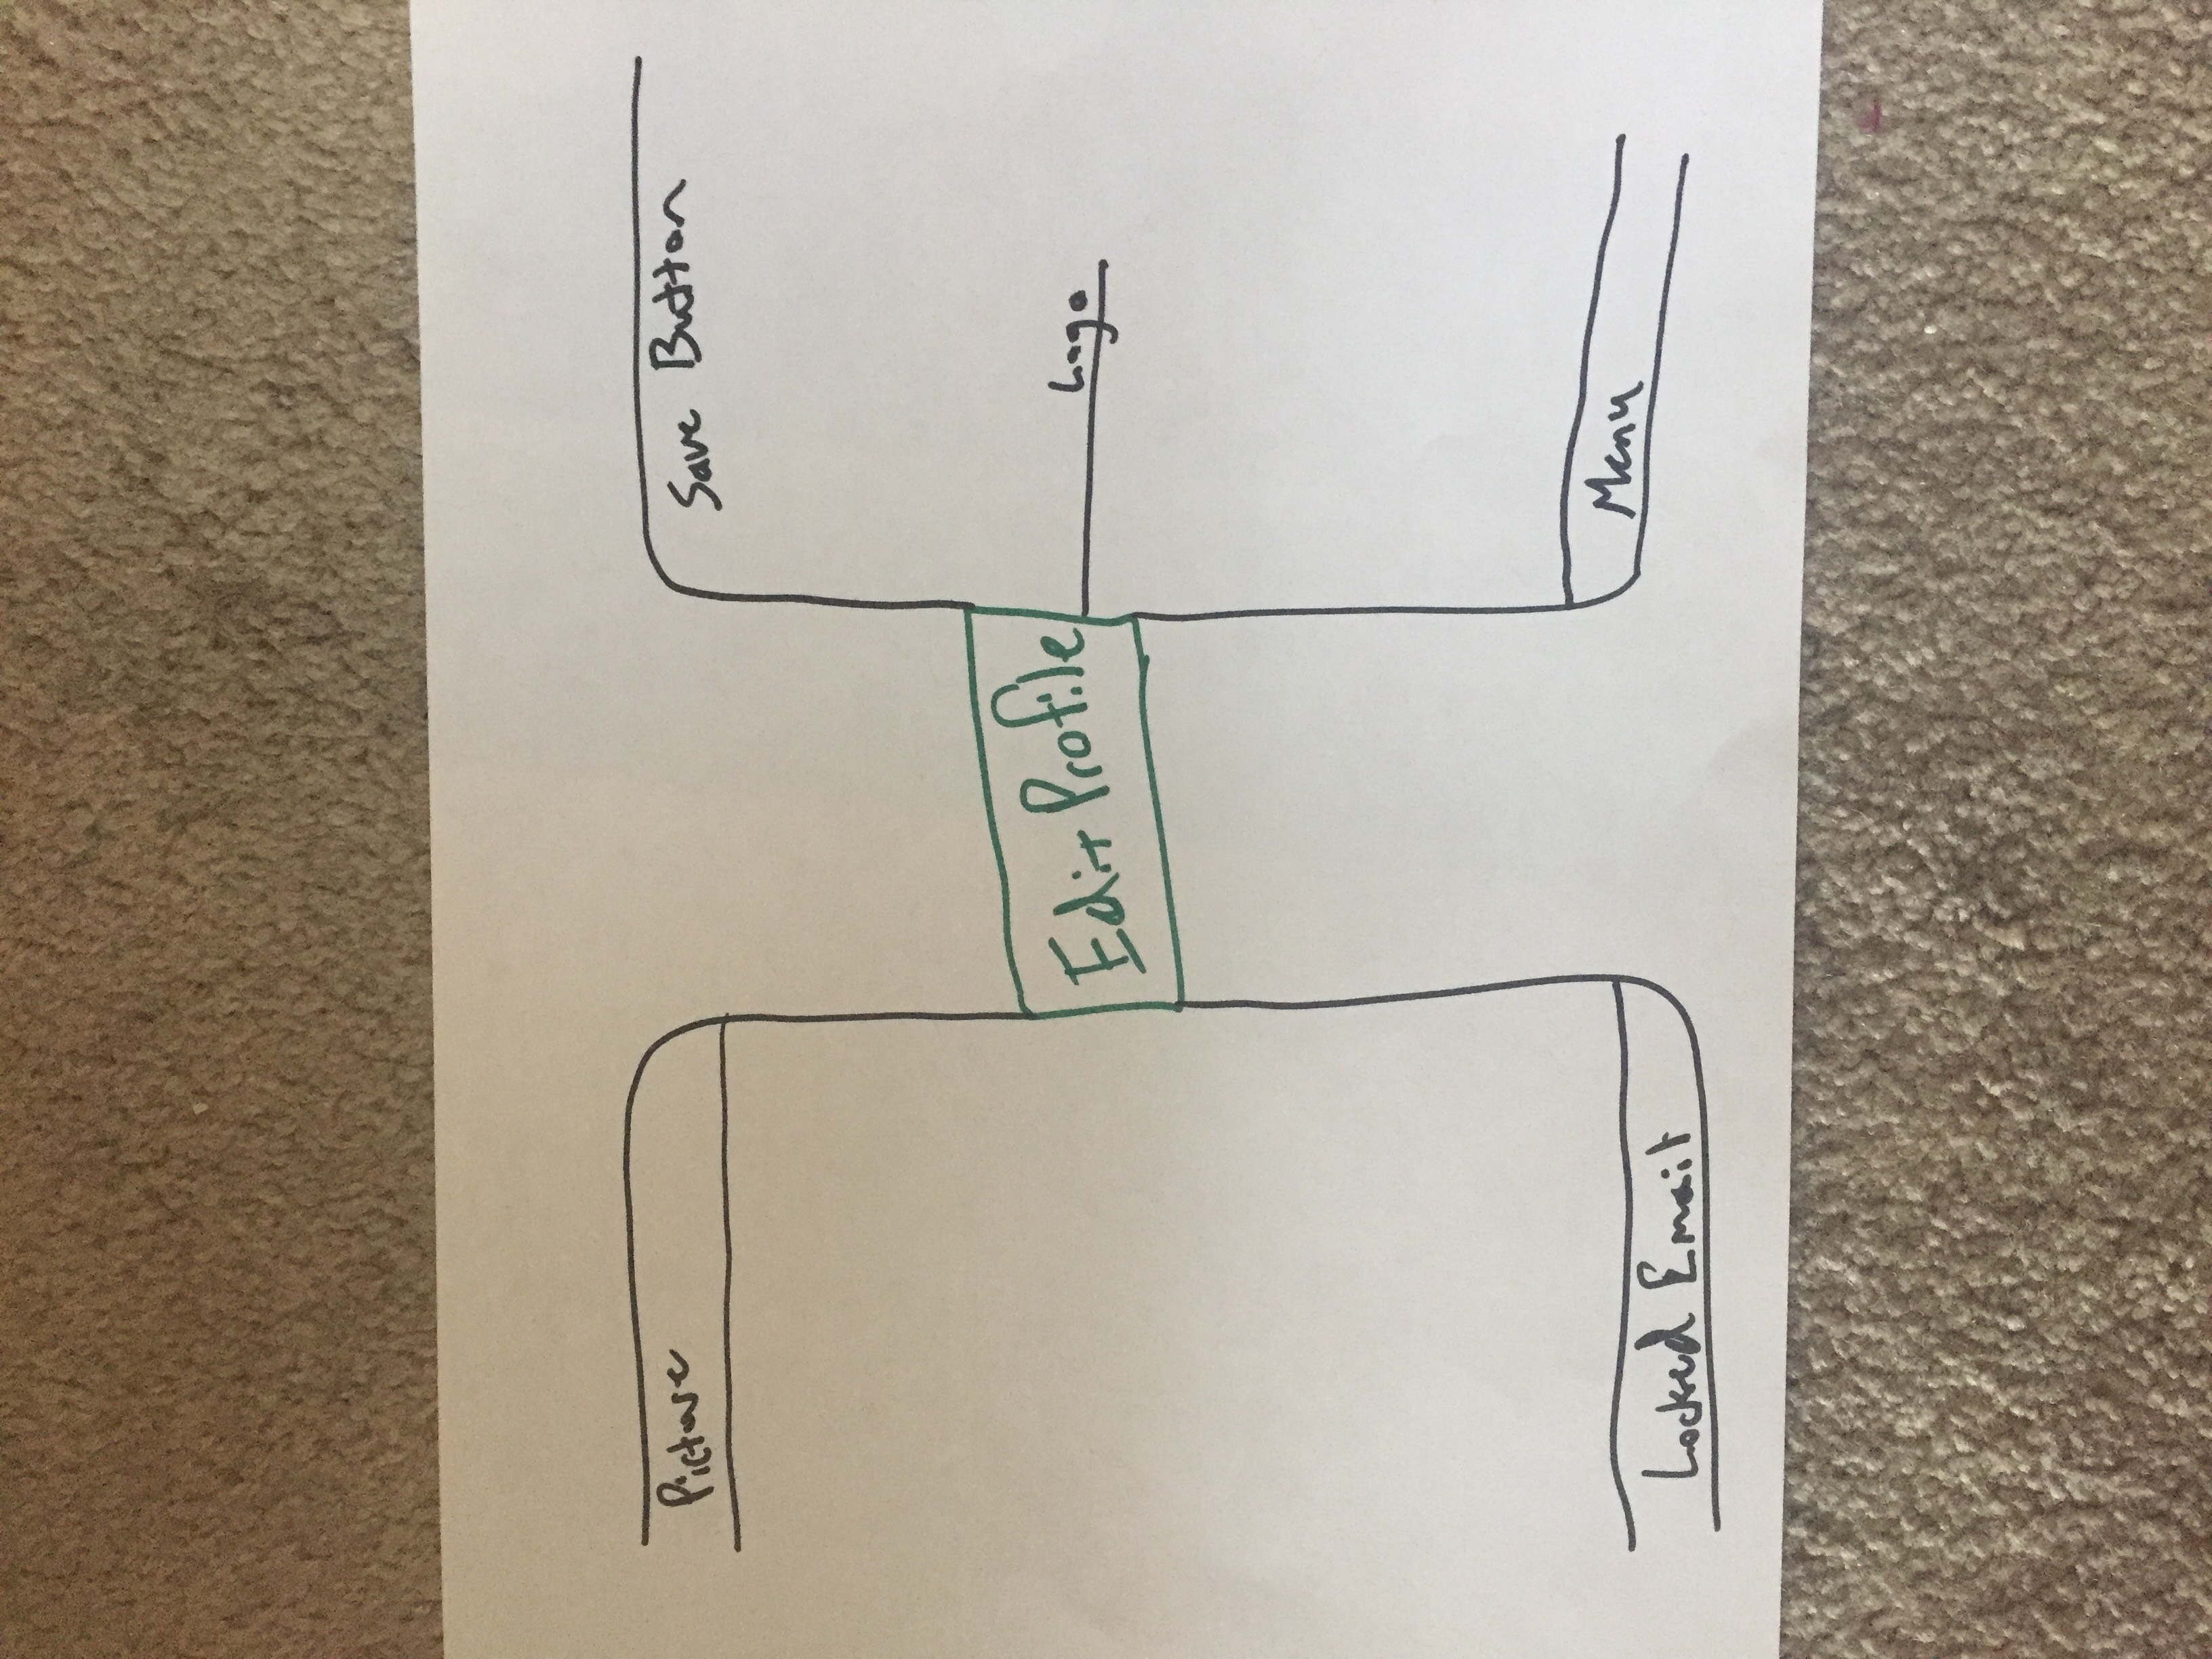 Picture
Save Button
Edit Profile
Logo
Locked Email
Menu